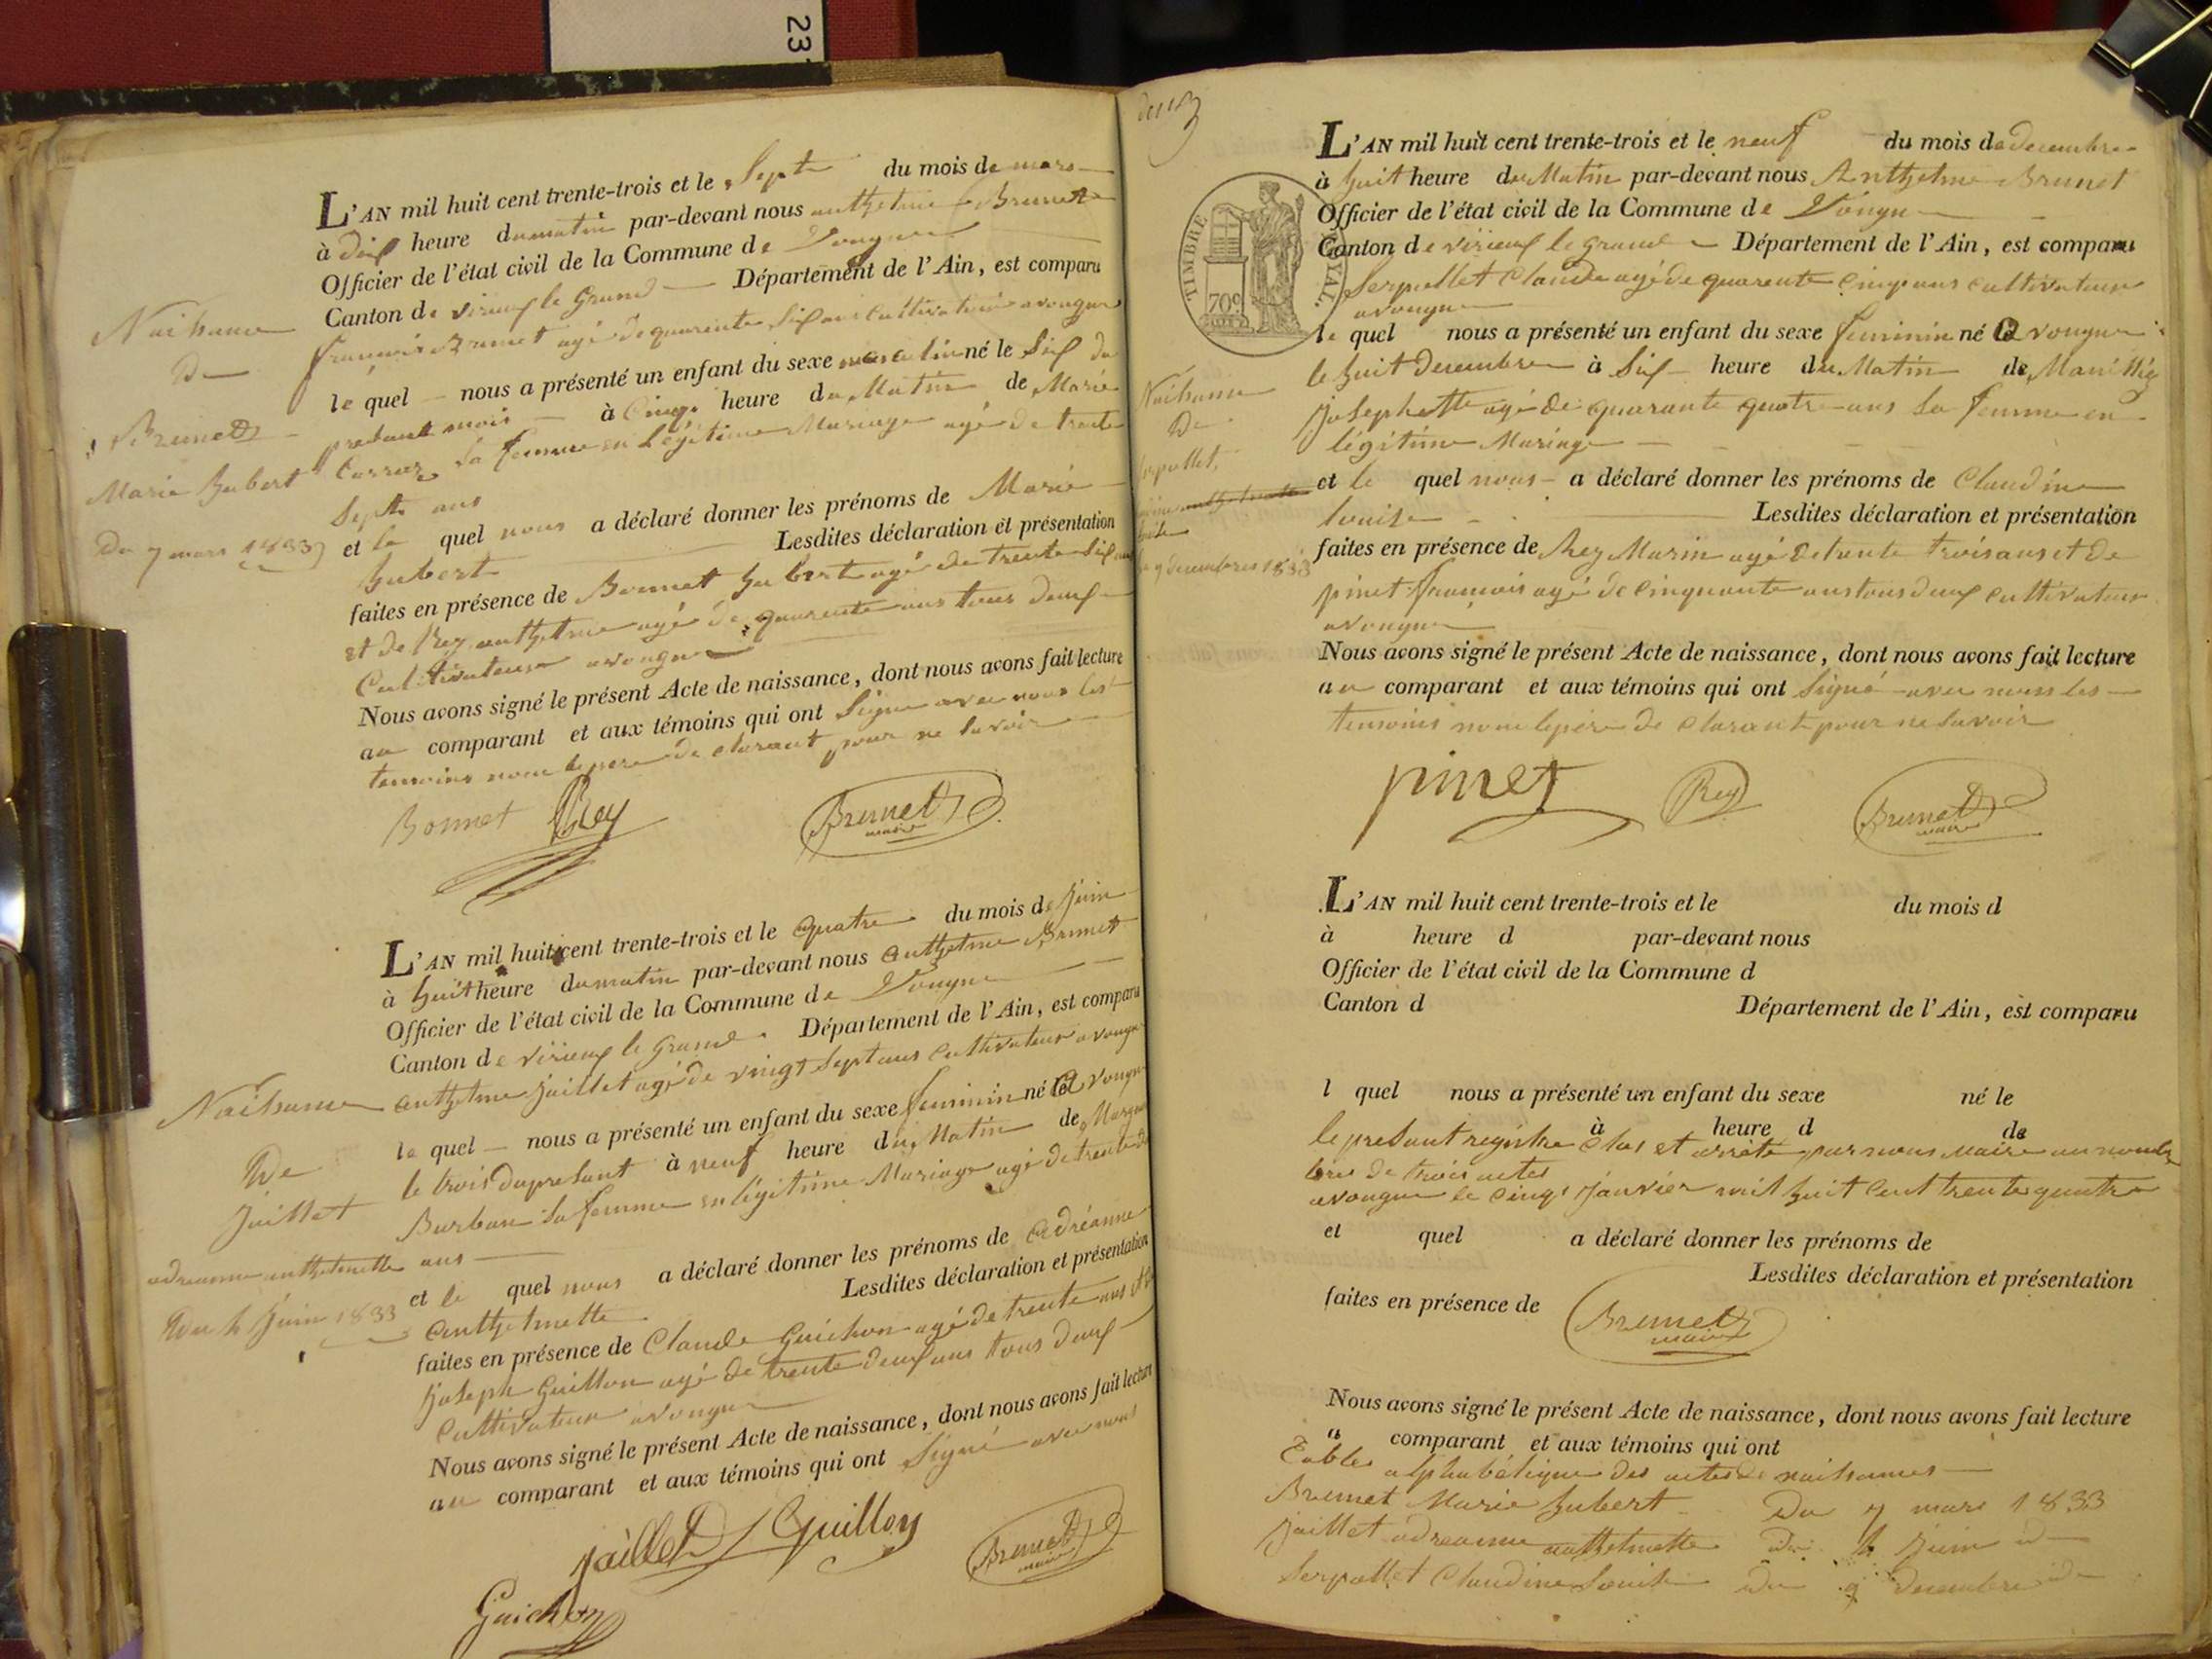 23
L'AN mil huit cent trente-trois et le Sept du mois de mars
à dix heure du matin par-devant nous anthelme Brunet
Officier de l'état civil de la Commune de Vongne
Canton de virieux le Grand Département de l'Ain, est comparu
francois Brunet agé de quarente six ans cultivateur avongne
le quel nous a présenté un enfant du sexe masculin né le Six du
presant mois à Cinq heure du Matin de Marie
Carraz sa femme en Légitime Mariage agé de trente
Sept ans
et le quel nous a déclaré donner les prénoms de Marie
hubert Lesdites déclaration et présentation
faites en présence de Bonnet hubert agé de trente Six ans
et de Rey anthelme agé de quarente ans tous deux
Cultivateur avongne
Nous avons signé le présent Acte de naissance, dont nous avons fait lecture
au comparant et aux témoins qui ont Signe avec nous les
temoins non le pere de clarant pour ne Savoir
Bonnet Rey Brunet
maire
Naissance
De
Brunet
Marie hubert
Du 7 mars 1833
L'AN mil huit cent trente-trois et le quatre du mois de Juin
à huit heure du matin par-devant nous anthelme Brunet
Officier de l'état civil de la Commune de Vongne
Canton de virieux le grand Département de l'Ain, est comparu
anthelme Jaillet agé de vingt Sept ans Cultivateur avongne
le quel nous a présenté un enfant du sexe feminin né à vongne
le trois du presant à neuf heure du Matin de
Burban sa femme en légitime Mariage agé de trente
ans
et le quel nous a déclaré donner les prénoms de adréanne
anthelmette Lesdites déclaration et présentation
faites en présence de Claude Guichon agé de trente ans et
Joseph Guillon agé de trente deux ans tous deux
Cultivateur avongne
Nous avons signé le présent Acte de naissance, dont nous avons fait lecture
au comparant et aux témoins qui ont Signé avec nous
Jaillet Guillon Brunet
maire
Guichon
Naissance
De
Jaillet
adreanne anthelmette
Du 4 Juin 1833
TIMBRE ROYAL.
70c
L'AN mil huit cent trente-trois et le neuf du mois de decembre
à huit heure du Matin par-devant nous Anthelme Brunet
Officier de l'état civil de la Commune de Vongne
Canton de virieux le grand Département de l'Ain, est comparu
Serpollet Claude agé de quarente Cinq ans cultivateur
avongne
le quel nous a présenté un enfant du sexe feminin né à vongne
le huit Decembre à Six heure du Matin de
Josephette agé de quarante quatre ans Sa femme en
légitime Mariage
et le quel nous a déclaré donner les prénoms de Claudine
Louise Lesdites déclaration et présentation
faites en présence de Rey Marin agé de trente trois ans et de
pinet francois agé de cinquante ans tous deux cultivateur
avongne
Nous avons signé le présent Acte de naissance, dont nous avons fait lecture
au comparant et aux témoins qui ont Signé avec nous les
temoins non le père de clarant pour ne Savoir
pinet Rey Brunet
maire
Naissance
De
9 decembres 1833
L'AN mil huit cent trente-trois et le du mois d
à heure d par-devant nous
Officier de l'état civil de la Commune d
Canton d Département de l'Ain, est comparu
l quel nous a présenté un enfant du sexe né le
à heure d de
le presant registre Clos et arrete par nous maire au nombre
de trois actes
avongne le cinq Janvier mil huit Cent trente quatre
et quel a déclaré donner les prénoms de
Lesdites déclaration et présentation
faites en présence de
Brunet
maire
Nous avons signé le présent Acte de naissance, dont nous avons fait lecture
a comparant et aux témoins qui ont
Table alphabétique des actes de naissances
Brunet Marie hubert Du 7 mars 1833
Jaillet adreanne anthelmette Du 4 Juin d
Serpollet Claudine Louise Du 9 decembre d